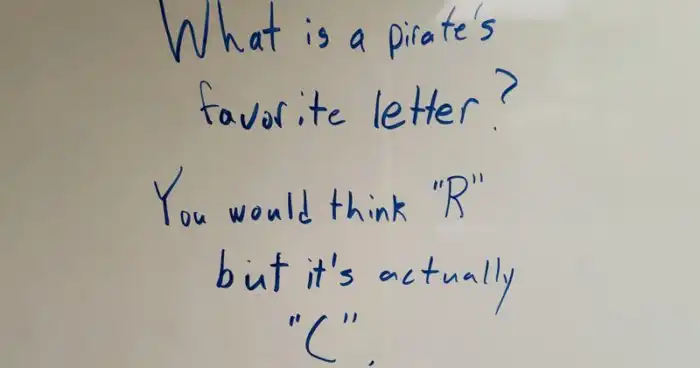 What is a pirate's
favorite letter?
You would think "R"
but it's actually
"C".